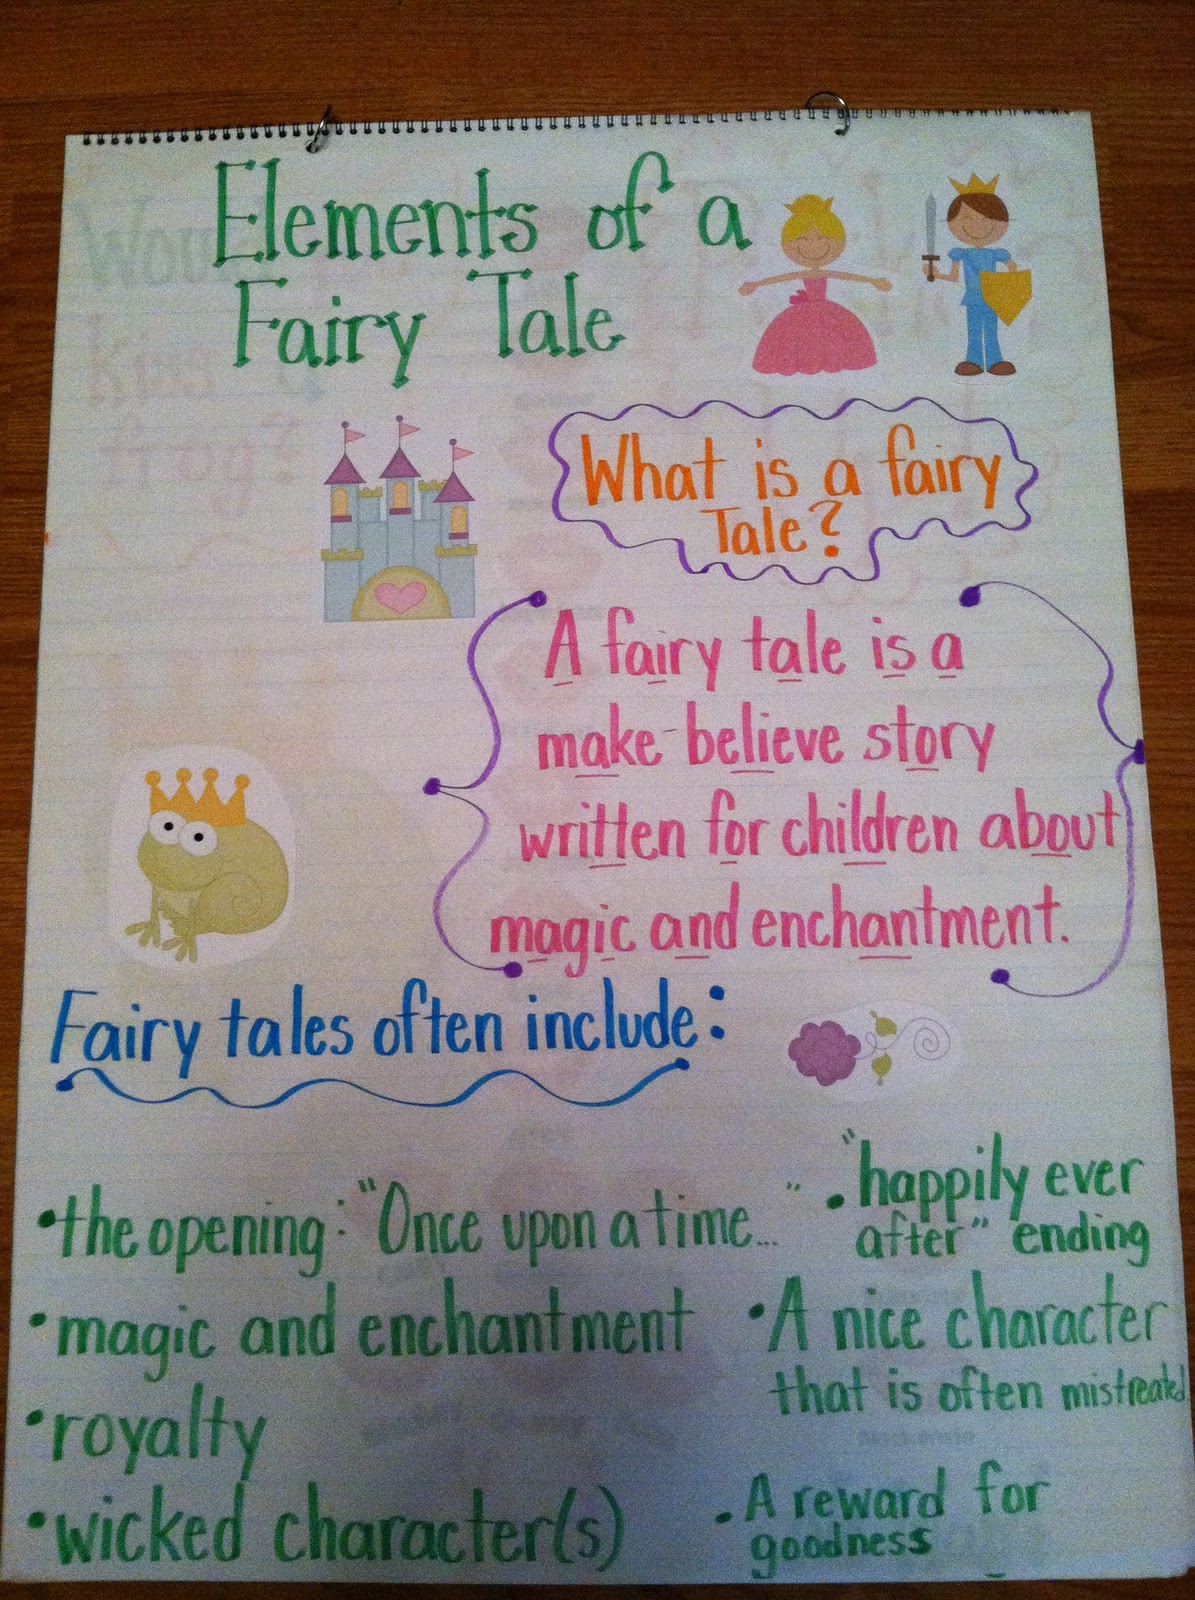 Elements of a
Fairy Tale
What is a fairy
Tale?
A fairy tale is a
make-believe story
written for children about
magic and enchantment.
Fairy tales often include:
•the opening: "Once upon a time... "
•magic and enchantment
•royalty
•wicked character(s)
• "happily ever
after" ending
•A nice character
that is often mistreated
•A reward for
goodness
Would
kiss a
frog?